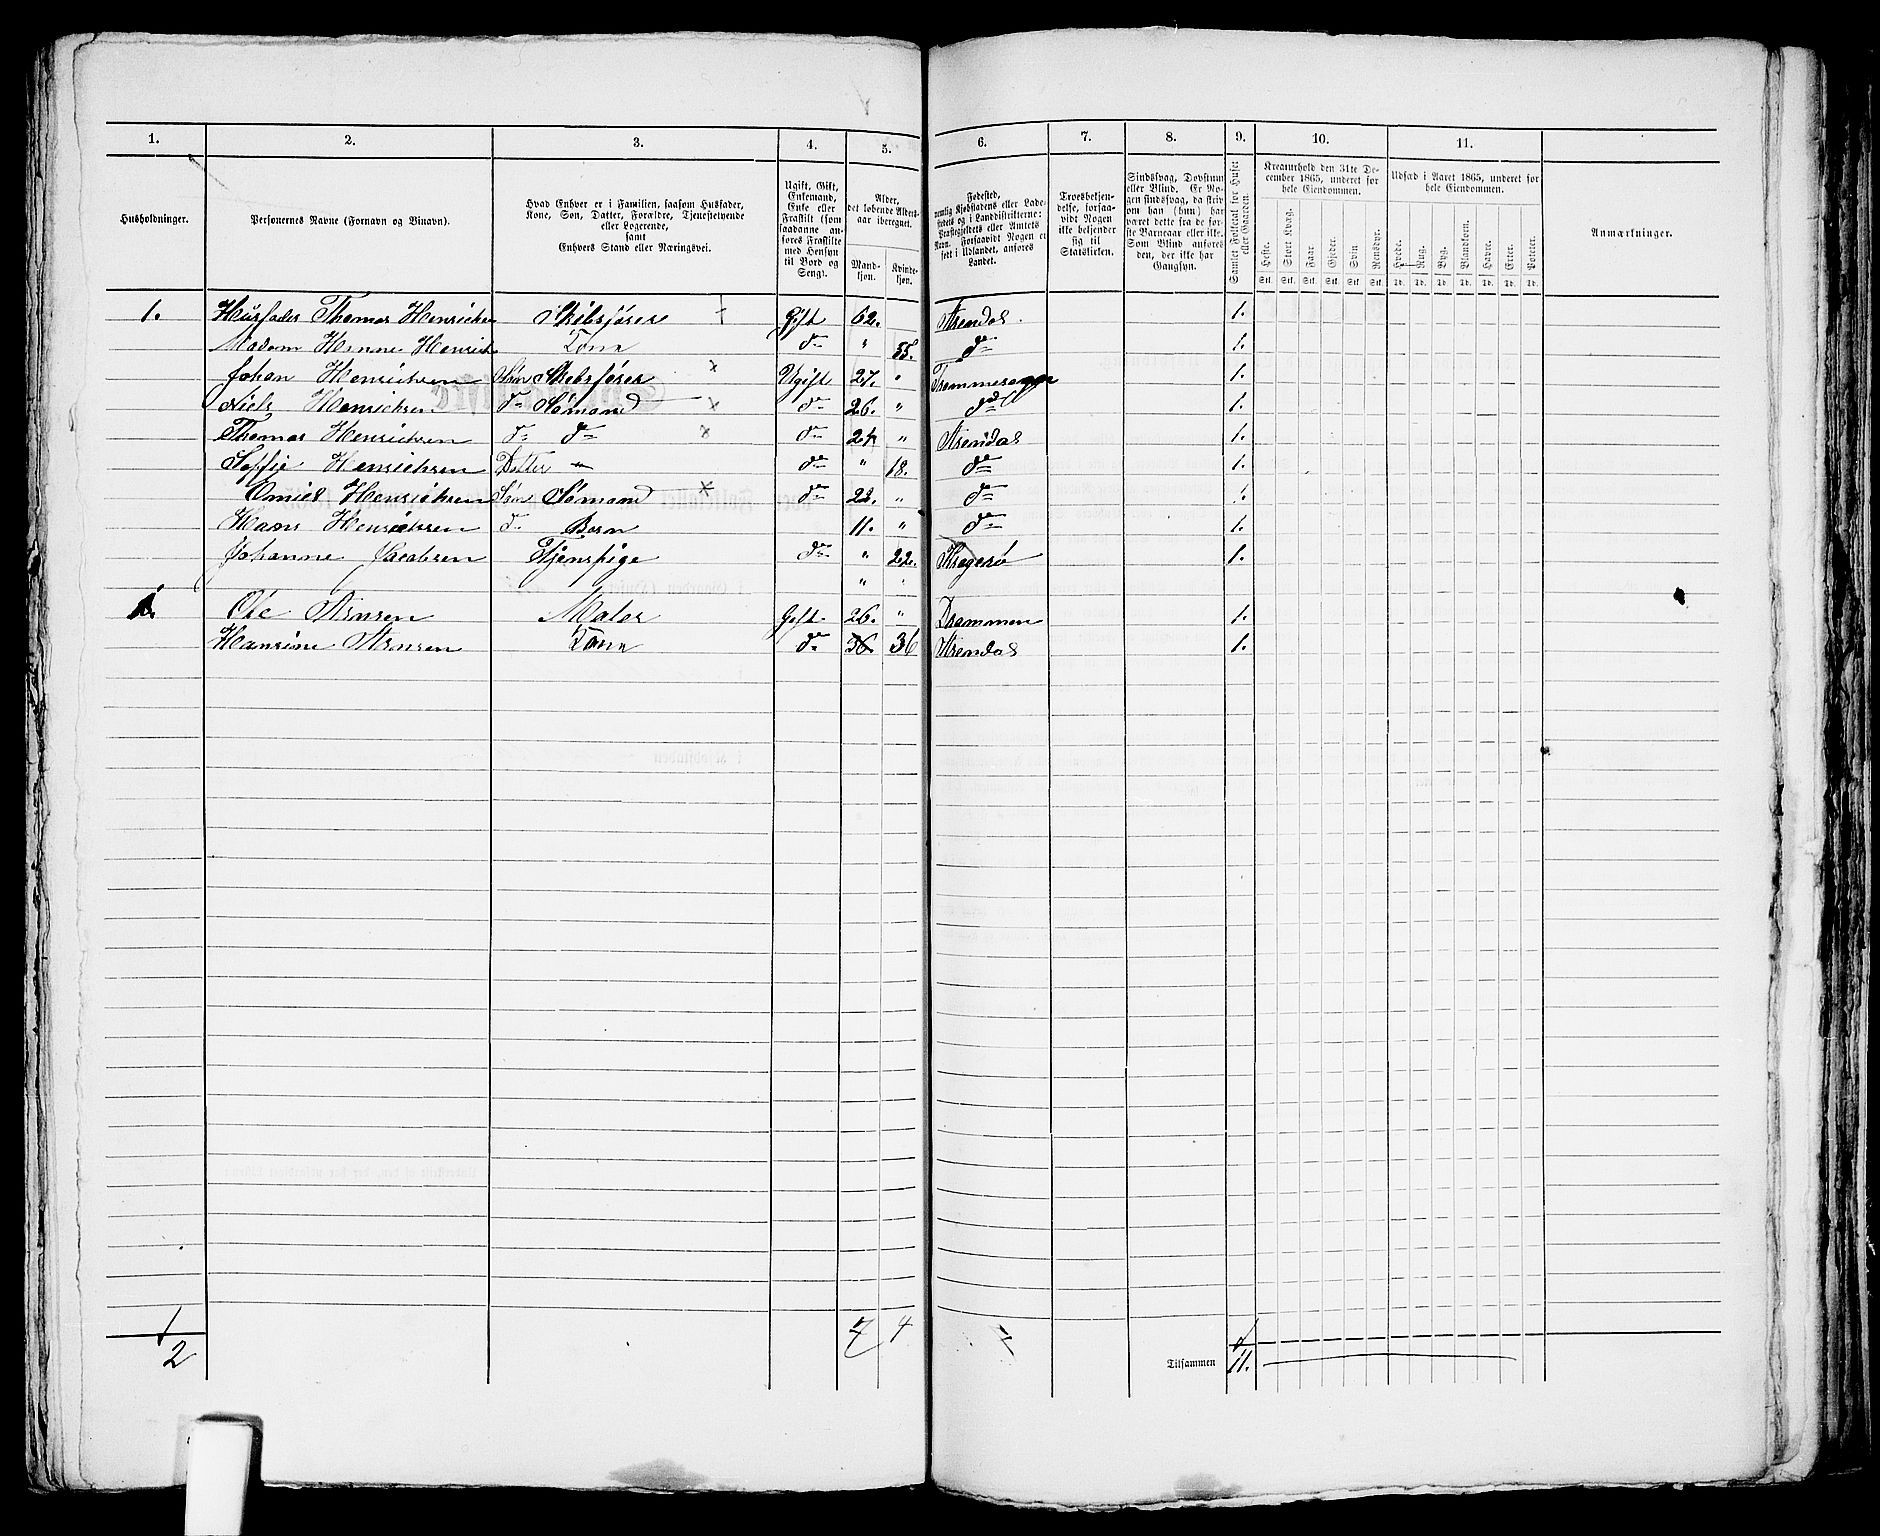 1. 2. 3. 4. 5. 6. 7. 8. 9. 10. 11.
Husholdninger.
Personernes Navne (Fornavn og Binavn).
Hvad Enhver er i Familien, saasom Husfader, Kone, Søn, Datter, Forældre, Tjenestetyende eller Logerende, samt Enhvers Stand eller Næringsvei.
Ugift, Gift, Enkemand, Enke eller Fraskilt (som saadanne anføres Fraskilte med Hensyn til Bord og Seng).
Alder, det løbende Aldersaar iberegnet.
Mandkjøn. Kvindekjøn.
Fødested, nemlig Kjøbstadens eller Ladestedets og i Landdistrikterne: Præstegjeldets eller Amtets Navn. Forsaavidt Nogen er født i Udlandet, anføres Landet.
Troesbekjendelse, forsaavidt Nogen ikke bekjender sig til Statskirken.
Sindssvag, Døvstum eller Blind. Er Nogen sindssvag, da skrives om han (hun) har været dette fra de første Barneaar eller ikke. Som Blind anføres den, der ikke har Gangsyn.
Samlet Folketal for Huset eller Gaarden.
Kreaturhold den 31te December 1865, underet for hele Eiendommen.
Heste. Stort Kvæg. Faar. Gjeder. Svin Rensdyr.
Udsæd i Aaret 1865, underet for hele Eiendommen.
Hvede. Rug. Byg. Blandkorn. Havre. Erter. Poteter.
Anmærkninger.
Stk. Stk. Stk. Stk. Stk. Stk. Td. Td. Td. Td. Td. Td. Td.
1. Husfader Thomas Henrichsen Skibsfører Gift 62. Arendal. 1.
Madam Hanne Henrich Kone do " 55. do 1.
Johan Henrichsen Søn Skibsfører × Ugift 27. " 1.
Niels Henrichsen do Sømand × do 26. " do 1.
Thomas Henrichsen do do × do 24 " Arendal 1.
Soffie Henrichsen Datter " do " 18. do 1.
Henrichsen Søn Sømand × do 22. " do 1.
Hans Henrichsen do Barn 11. " do 1.
Johanne Jacobsen Tjenspige do " 22. Kragerø 1.
" "
1. Ole Arnsen Maler Gift. 26. " Drammen 1.
Hansine Arnsen Kone do 36 36 Arendal 1.
2 7 4 Tilsammen 11.